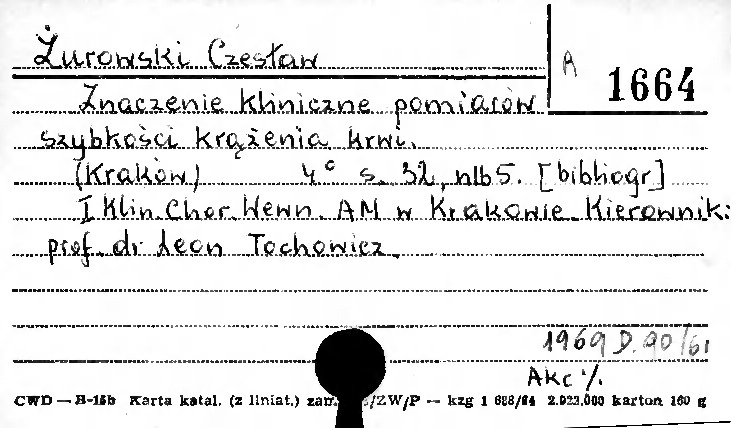 Żurowski Czesław
A 1664
Znaczenie kliniczne pomiarów
szybkości krążenia krwi.
(Kraków) 4° s. 32, nlb 5. [bibliogr]
I Klin. Chor. Wewn. AM w Krakowie. Kierownik:
prof. dr Leon Tochowicz.
1969 D. 90/61
Akc %
CWD — B-15b Karta katal. (z liniat.) zam. /ZW/P — kzg 1 688/64 2.023.000 karton 160 g